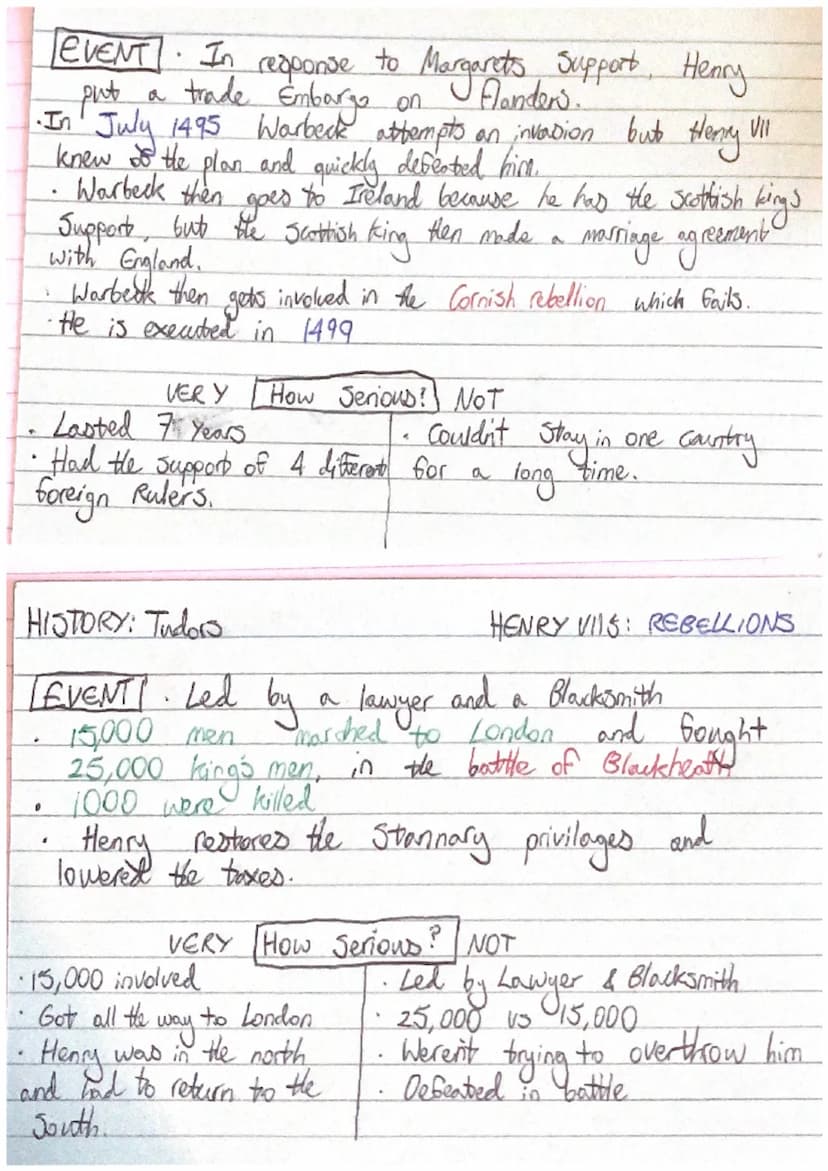 EVENT . In response to Margarets Support, Henry
put a trade Embargo on Flanders.
. In July 1495 Warbeck attempts an invasion but Henry VII
knew of the plan and quickly defeated him.
. Warbeck then goes to Ireland because he has the scottish kings
Support, but the scottish king then made a marriage agreement
with England.
. Warbeck then gets involved in the Cornish rebellion which fails.
. He is executed in 1499
VERY How Serious? NOT
. Lasted 7 Years
. Had the support of 4 different
foreign Rulers.
. Couldn't Stay in one country
for a long time.
HISTORY: Tudors HENRY VIIS: REBELLIONS
EVENT . Led by a lawyer and a Blacksmith
. 15,000 men marched to London and fought
25,000 king's men, in the battle of Blackheath
. 1000 were killed
. Henry restores the Stannary privilages and
lowered the taxes.
VERY How Serious? NOT
. 15,000 involved
. Got all the way to London
. Henry was in the north
and had to return to the
South.
. Led by Lawyer & Blacksmith
. 25,000 vs 15,000
. Weren't trying to overthrow him
. Defeated in battle